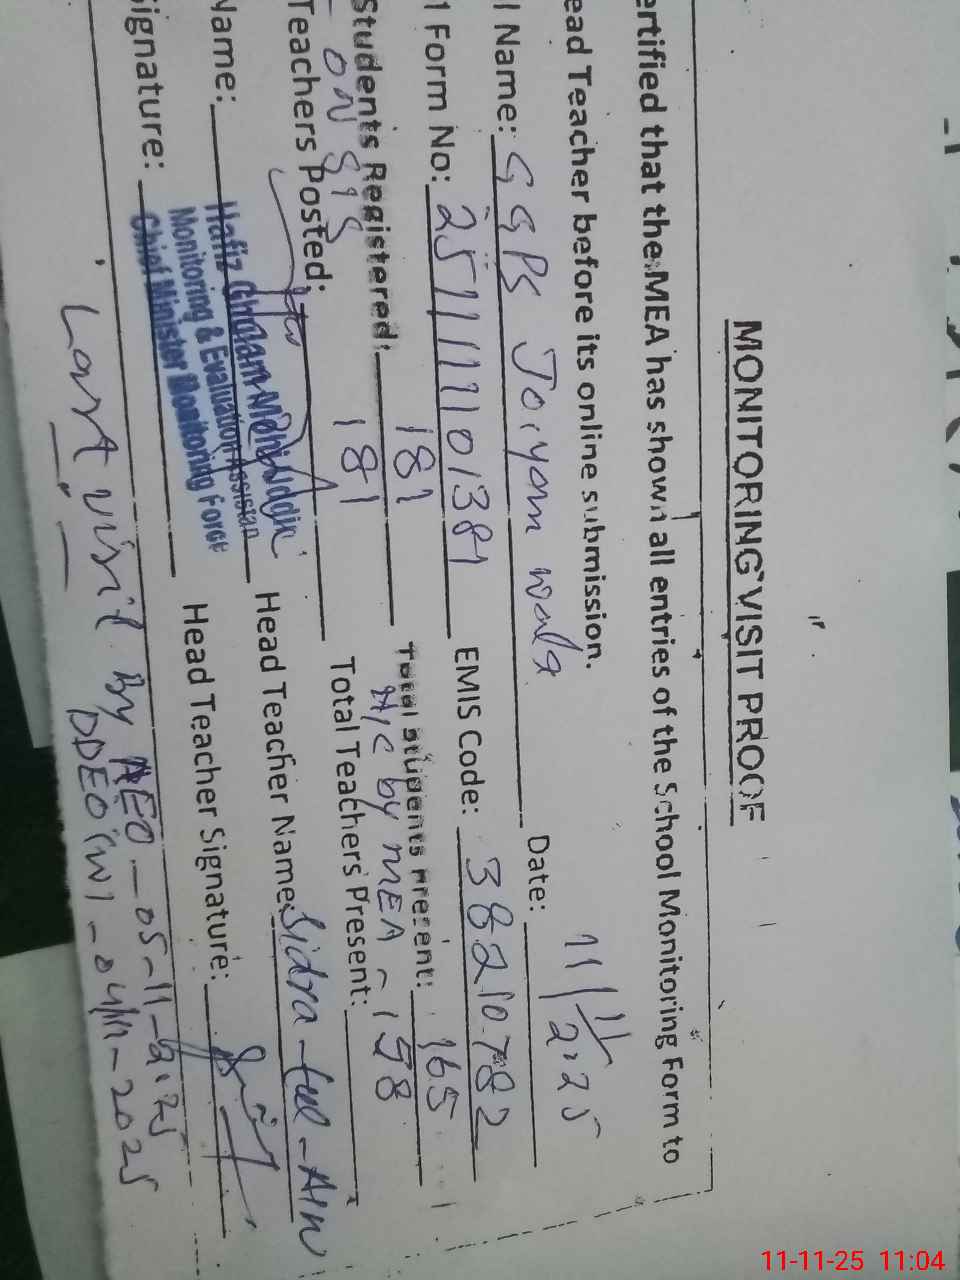 MONITORING VISIT PROOF
ertified that the MEA has shown all entries of the School Monitoring Form to
ead Teacher before its online submission.
Date: 11/11/2025
l Name: GGPS Joiyam wala
l Form No: 25111111101381 EMIS Code: 38210782
Students Registered: 181 Total Students Present: 165
ON SIS 181 H/C by MEA - 158
Teachers Posted: Total Teachers Present:
Name: Hafiz Ghulam Mohiuddin Head Teacher Name: Sidra-tul-Ain
Monitoring & Evaluation Assistan
Chief Minister Monitoring Force
ignature: Head Teacher Signature:
Last visit by AEO - 05-11-2025
DDEO(W) - 04/11-2025
11-11-25 11:04